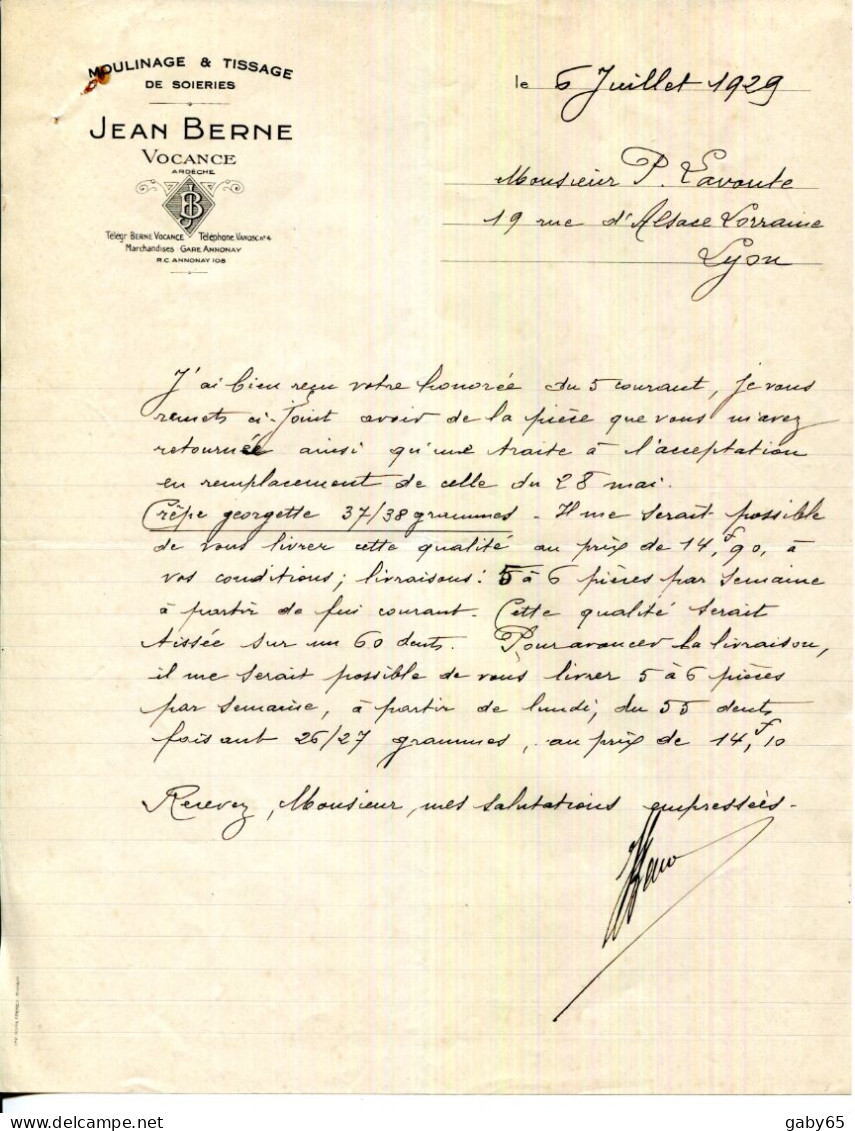 MOULINAGE & TISSAGE
DE SOIERIES
JEAN BERNE
VOCANCE
ARDÈCHE
JB
Télégr BERNE VOCANCE Téléphone VANOSC Nº 4
Marchandises - GARE ANNONAY
R.C. ANNONAY 108
le 6 Juillet 1929
Monsieur P. Lavoute
19 rue d'Alsace Lorraine
Lyon
J'ai bien reçu votre honorée du 5 courant, je vous
remets ci-joint avoir de la pièce que vous m'avez
retournée ainsi qu'une traite à l'acceptation
en remplacement de celle du 28 mai.
Crêpe georgette 37/38 grammes - Il me serait possible
de vous livrer cette qualité au prix de 14,f90, à
vos conditions; livraisons: 5 à 6 pièces par semaine
à partir de fin courant. Cette qualité serait
tissée sur un 60 dents. Pour avancer la livraison,
il me serait possible de vous livrer 5 à 6 pièces
par semaine, à partir de lundi, du 55 dents
faisant 26/27 grammes, au prix de 14,f10
Recevez, Monsieur, mes salutations empressées -
gaby65